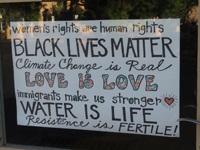 women's rights are human rights
BLACK LIVES MATTER
Climate Change is Real
LOVE IS LOVE
immigrants make us stronger
WATER IS LIFE
Resistance is FERTILE!